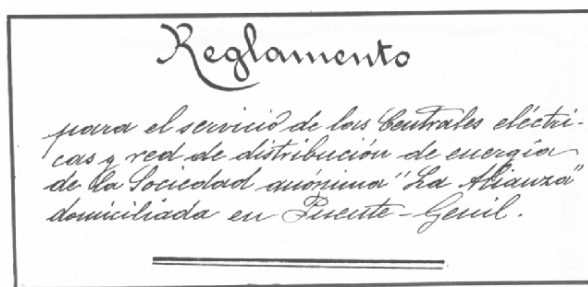 Reglamento
para el servicio de las Centrales eléctri-
cas y red de distribución de energía
de la Sociedad anónima "La Alianza"
domiciliada en Puente-Genil.